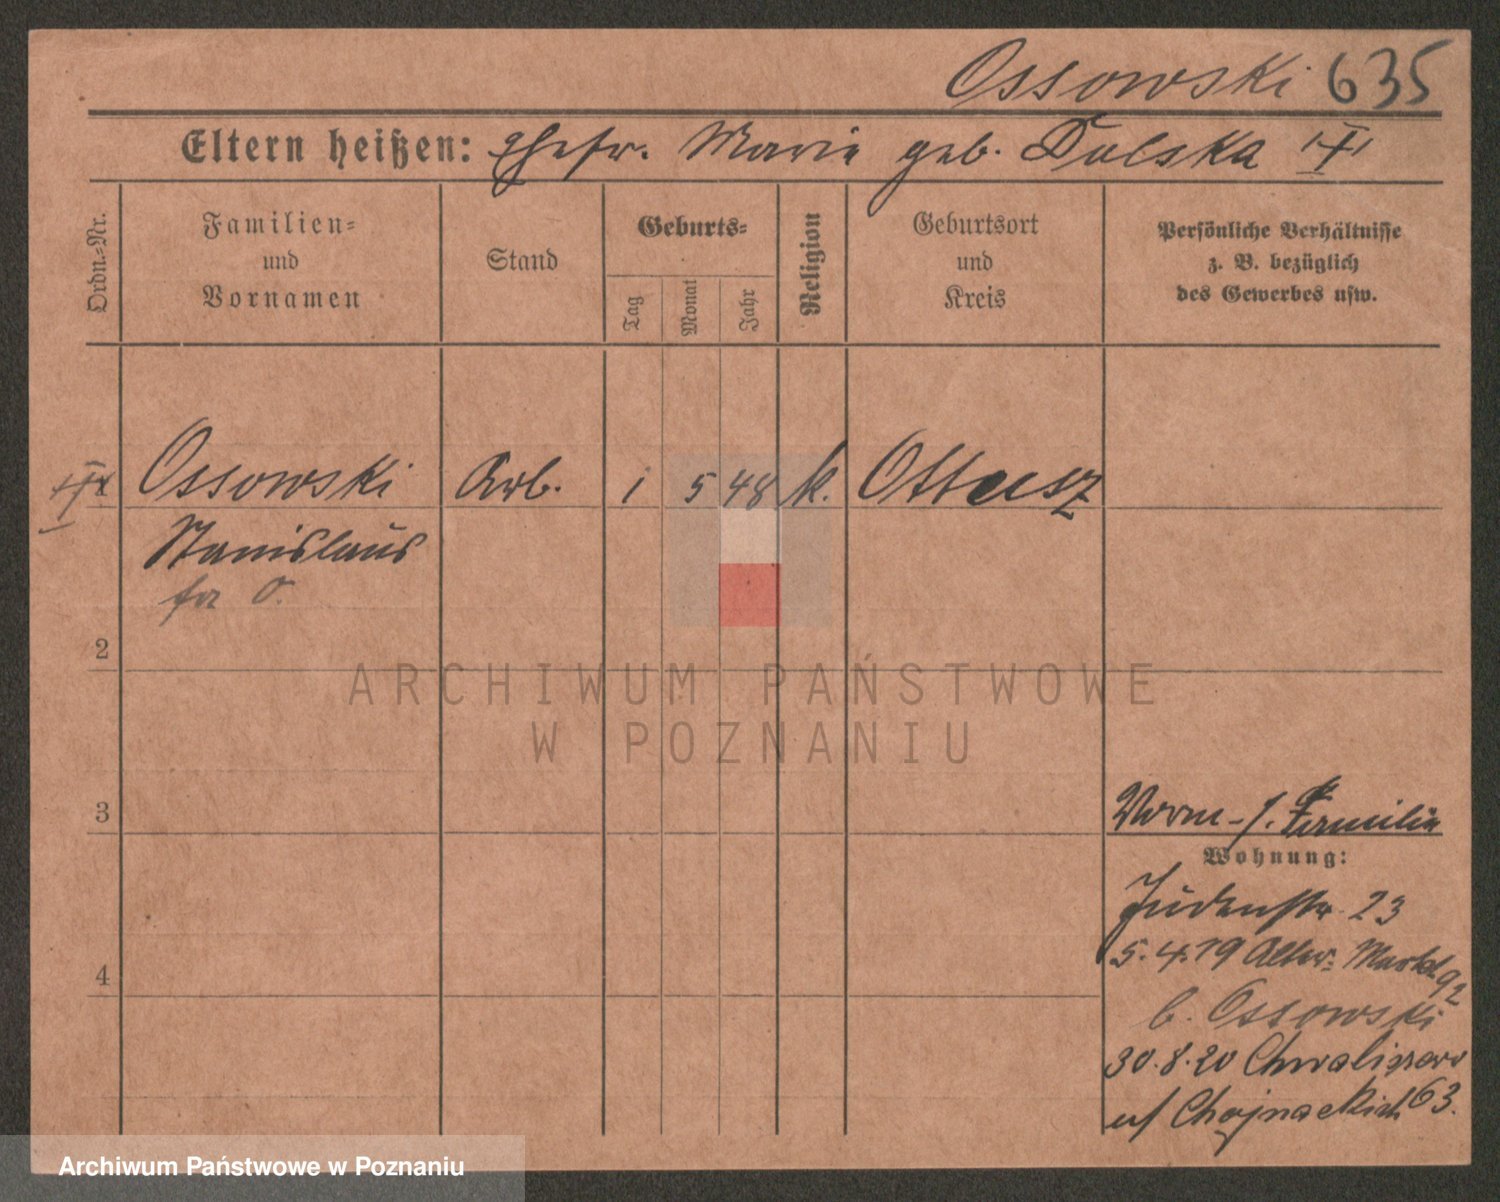 Ossowski 635
Eltern heißen: Ehefr. Marie geb. Dulska
Ordn.-Nr.
Familien-
und
Vornamen
Stand
Geburts-
Tag
Monat
Jahr
Religion
Geburtsort
und
Kreis
Persönliche Verhältnisse
z. B. bezüglich
des Gewerbes usw.
1 Ossowski Arb. 1 5 48 k. Ottusz
Stanislaus
2
3
4
Familie
Wohnung:
Judenstr. 23
5.4.19 Alter Markt 92
b. Ossowski
30.8.20 Chwaliszewo
Chojnackich 63.
ARCHIWUM PAŃSTWOWE
W POZNANIU
Archiwum Państwowe w Poznaniu